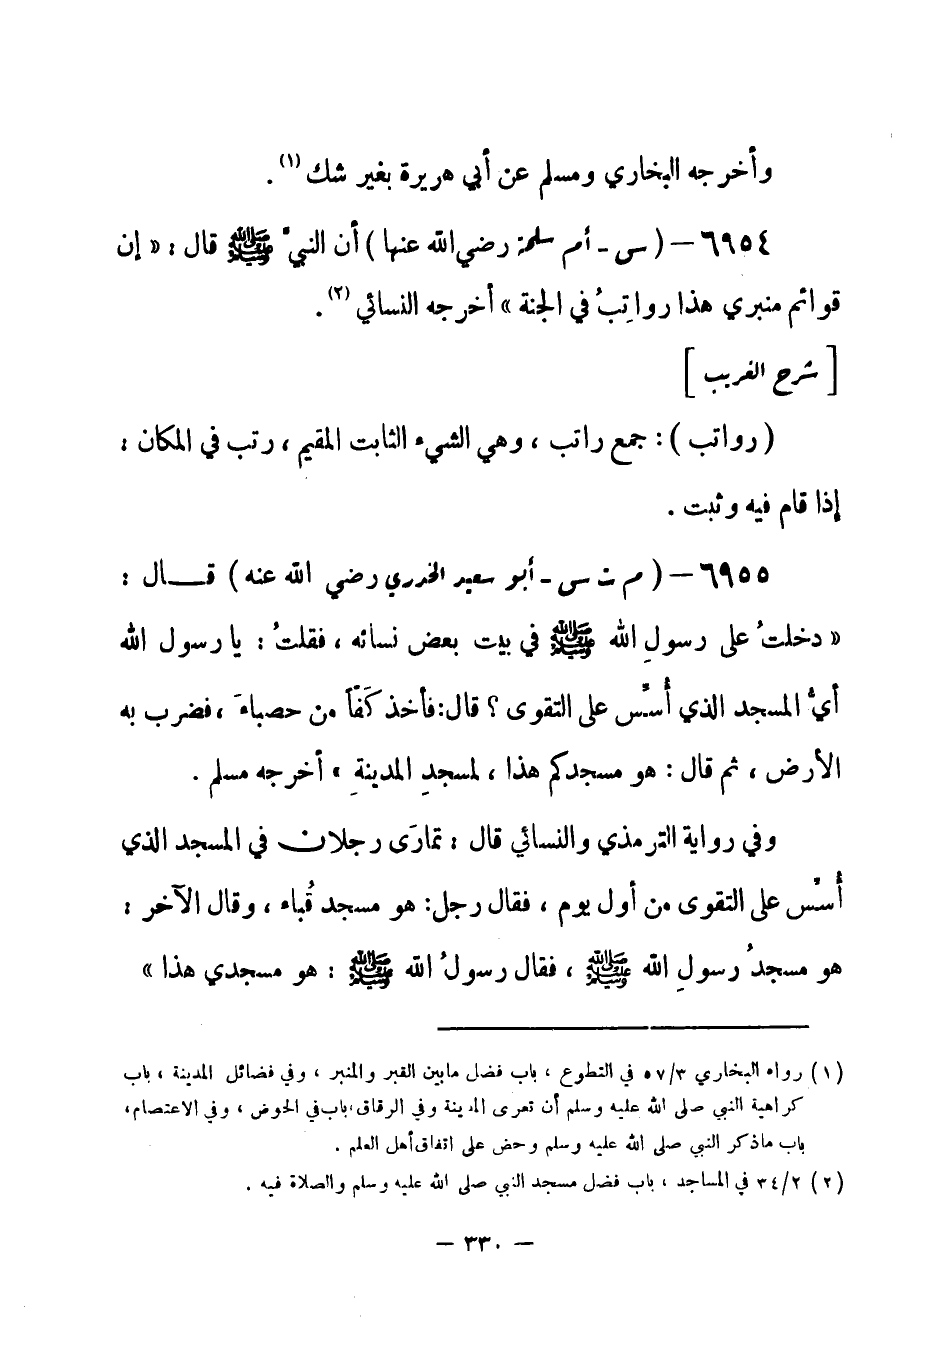 وأخرجه البخاري ومسلم عن أبي هريرة بغير شك (١) .
٦٩٥٤ – ( س - أم سلمة رضي الله عنها ) أن النبيَّ ﷺ قال : « إن
قوائم منبري هذا رواتِبُ في الجنة » أخرجه النسائي (٢) .
[ شرح الغريب ]
( رواتب ) : جمع راتب ، وهي الشيء الثابت المقيم ، رتب في المكان :
إذا قام فيه وثبت .
٦٩٥٥ – ( م ت س - أبو سعيد الخدري رضي الله عنه ) قـــال :
« دخلتُ على رسولِ الله ﷺ في بيت بعض نسائه ، فقلتُ : يا رسول الله
أيُّ المسجد الذي أُسِّس على التقوى ؟ قال: فأخذ كَفّاً من حصباءَ ، فضرب به
الأرض ، ثم قال : هو مسجدكم هذا ، لمسجدِ المدينةِ » أخرجه مسلم .
وفي رواية الترمذي والنسائي قال : تمارَى رجلان في المسجد الذي
أُسِّس على التقوى من أول يوم ، فقال رجل: هو مسجد قُباء ، وقال الآخر :
هو مسجدُ رسولِ الله ﷺ ، فقال رسولُ الله ﷺ : هو مسجدي هذا »
(١) رواه البخاري ٥٧/٣ في التطوع ، باب فضل مابين القبر والمنبر ، وفي فضائل المدينة ، باب
كراهية النبي صلى الله عليه وسلم أن تعرى المدينة وفي الرقاق، باب في الحوض ، وفي الاعتصام،
باب ماذكر النبي صلى الله عليه وسلم وحض على اتفاق أهل العلم .
(٢) ٣٤/٢ في المساجد ، باب فضل مسجد النبي صلى الله عليه وسلم والصلاة فيه .
– ٣٣٠ –